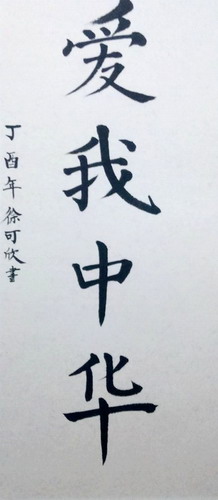 爱我中华
丁酉年徐可欣书